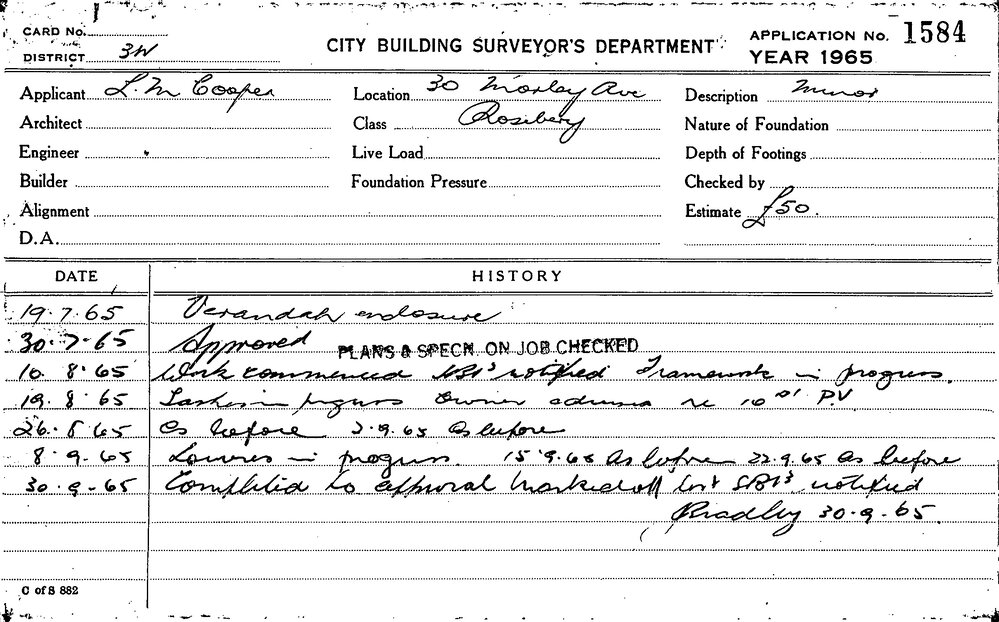 CARD No.
DISTRICT 3W
CITY BUILDING SURVEYOR'S DEPARTMENT
APPLICATION No. 1584
YEAR 1965
Applicant L. M Cooper
Location 30 Morley Ave
Description Minor
Architect
Class Rosebery
Nature of Foundation
Engineer
Live Load
Depth of Footings
Builder
Foundation Pressure
Checked by
Alignment
Estimate £50.
D.A.
DATE HISTORY
19.7.65 Verandah enclosure
30.7.65 Approved PLANS & SPECN. ON JOB CHECKED
10.8.65 Work commenced notified Framework in progress.
19.8.65 in progress Owner re PV
26.8.65 As before 2.9.65 As before
8.9.65 Louvres in progress. 15.9.65 As before 22.9.65 As before
30.9.65 Completed to approval Marked off notified
Bradley 30.9.65.
C of S 882